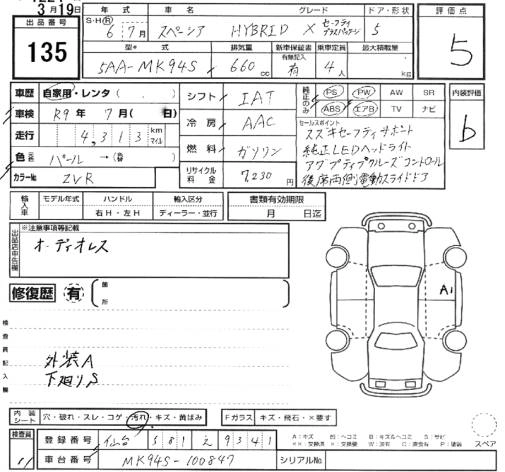 3月19日
年式 車名 グレード ドア・形状 評価点
出品番号 135
S・H・R 6年7月 スペーシア HYBRID X セーフティプラスパッケージ 5
5
型式 排気量 新車保証書 乗車定員 最大積載量
5AA-MK94S 660cc 有無記入 有 4人 kg
車歴 自家用・レンタ( )
車検 R9年7月( 日)
走行 4,313 km マイル
色 パール→(替 )
カラーNo. ZVR
シフト IAT
冷房 AAC
燃料 ガソリン
リサイクル料金 7,230円
純正のみ PS PW AW SR
ABS エアB TV ナビ
内装評価 b
セールスポイント
スズキセーフティサポート
純正LEDヘッドライト
アダプティブクルーズコントロール
後席両側電動スライドドア
輸入車 モデル年式 ハンドル 輸入区分 書類有効期限
年 右H・左H ディーラー・並行 月 日迄
出品店申告欄 ※注意事項等記載
オーディオレス
修復歴 有 箇所
A1
検査員記入欄
外装A
下廻りS
内装シート 穴・破れ・スレ・コゲ・汚れ・キズ・黄ばみ Fガラス キズ・飛石・×要す
スペア
検査員 登録番号 仙台 581 え 9341
車台番号 MK94S-100847 シリアルNo.
A:キズ B:ヘコミ W:波 S:サビ